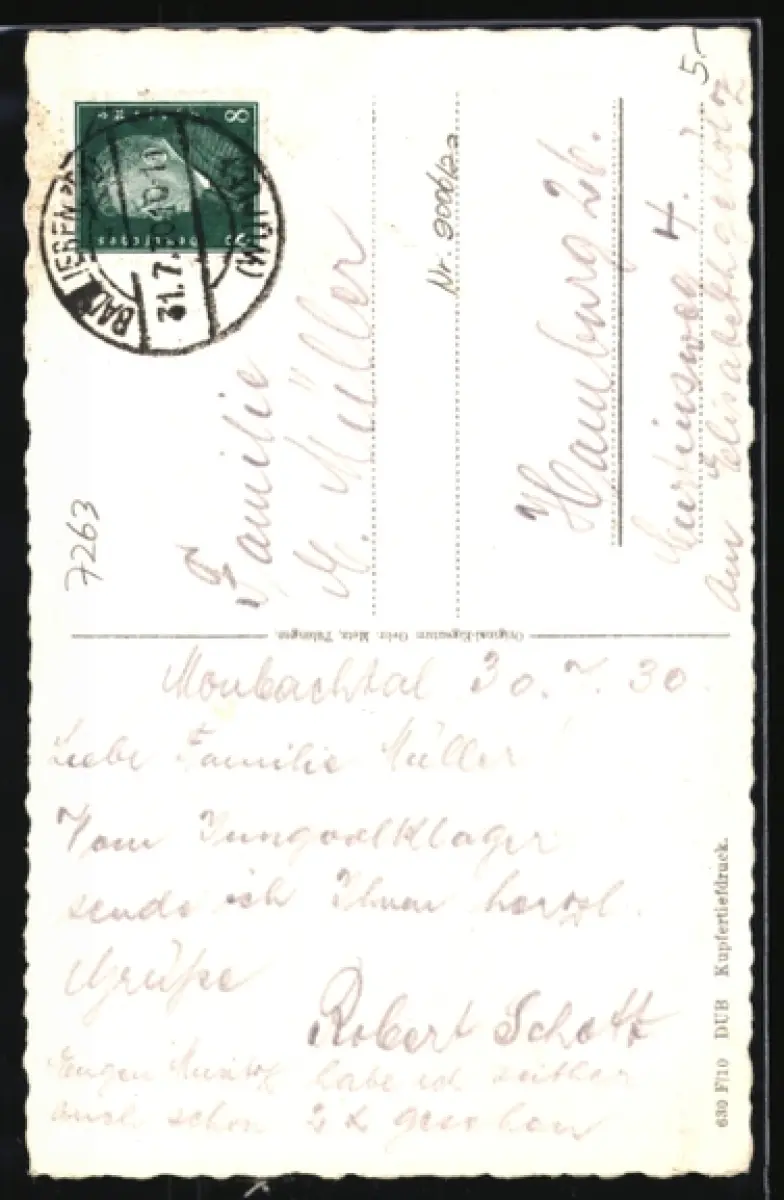 Monbachtal 30.7.30.
Liebe Familie Müller!
Vom Jungvolklager
sende ich Ihnen herzl.
Grüße
Robert Schott
Eugen habe ich seither
auch schon 2 x gesehen
Familie
Müller
Hamburg 26.
4.
Am Elisabethgehölz
Nr.
7263
5.-
8
8
Deutsches
BAD LIEBENZELL
31.7.30.10-11
(WÜRTT)
Original-Eigentum Gebr. Metz, Tübingen.
630 F/10 DUB Kupfertiefdruck.